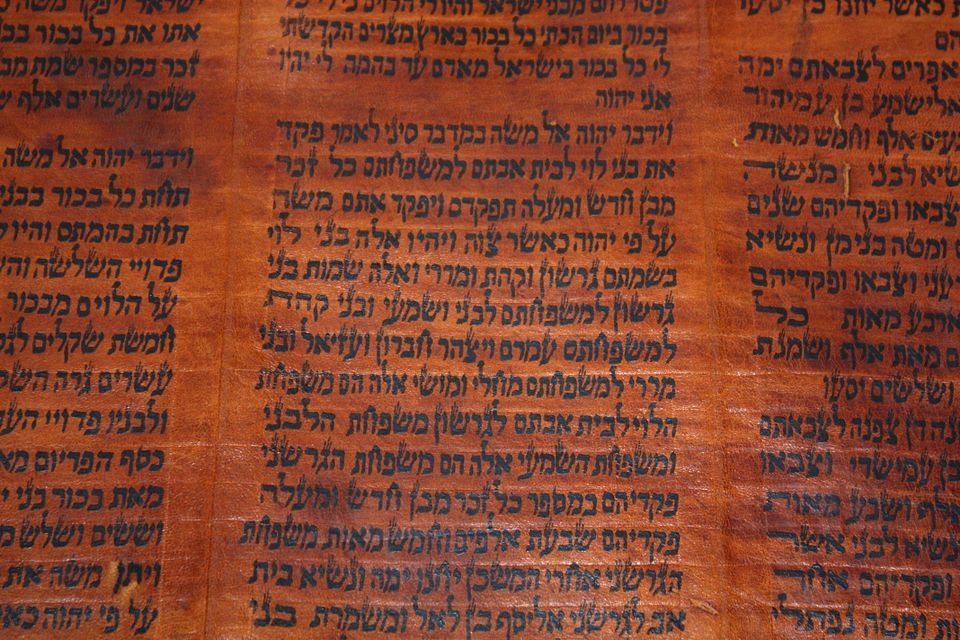 כאשר יחנו כן יסעו
הם
אפרים לצבאתם ימה
אלישמע בן עמיהוד
אלף וחמש מאות
לבני מנשה
צבאו ופקדיהם שנים
ומטה בנימן ונשיא
וצבאו ופקדיהם
ארבע מאות כל
מאת אלף ושמנת
ושלשים יסעו
הדן צפנה לצבאתם
בן עמישדי וצבאו
אלף ושבע מאות
נשיא לבני אשר
ופקדיהם אחד
ומטה נפתלי
רחם מבני ישראל והיו לי הלוים כי לי
בכור ביום הכתי כל בכור בארץ מצרים הקדשתי
לי כל בכור בישראל מאדם עד בהמה לי יהיו
אני יהוה
וידבר יהוה אל משה במדבר סיני לאמר פקד
את בני לוי לבית אבתם למשפחתם כל זכר
מבן חדש ומעלה תפקדם ויפקד אתם משה
על פי יהוה כאשר צוה ויהיו אלה בני לוי
בשמתם גרשון וקהת ומררי ואלה שמות בני
גרשון למשפחתם לבני ושמעי ובני קהת
למשפחתם עמרם ויצהר חברון ועזיאל ובני
מררי למשפחתם מחלי ומושי אלה הם משפחת
הלוי לבית אבתם לגרשון משפחת הלבני
ומשפחת השמעי אלה הם משפחת הגרשני
פקדיהם במספר כל זכר מבן חדש ומעלה
פקדיהם שבעת אלפים וחמש מאות משפחת
הגרשני אחרי המשכן יחנו ימה ונשיא בית
אב לגרשני אליסף בן לאל ומשמרת בני
ישראל ויפקד משה
אתו את כל בכור
זכר במספר שמת
שנים ועשרים אלף
וידבר יהוה אל משה
תחת כל בכור בבני
תחת בהמתם והיו
פדויי השלשה
על הלוים מבכור
חמשת שקלים
עשרים גרה
ולבניו פדויי
כסף הפדיום
מאת בכור בני
וששים ושלש
ויתן משה את
על פי יהוה